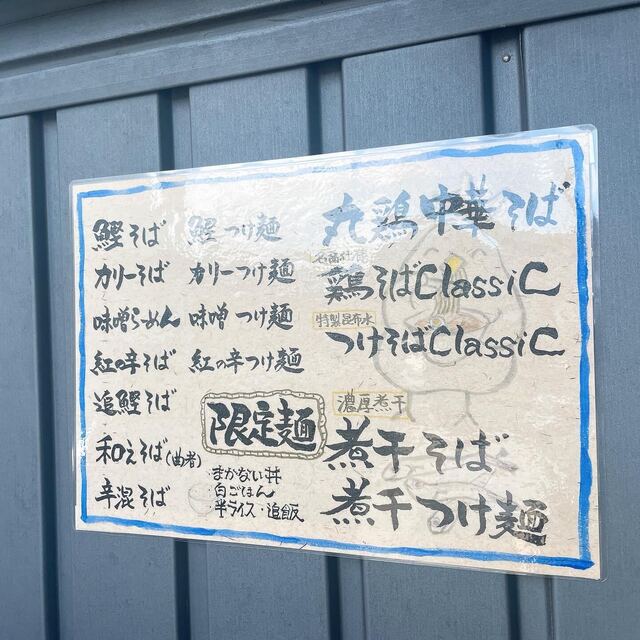 鰹そば
カリーそば
味噌らーめん
紅の辛そば
追鰹そば
和えそば(曲者)
辛混そば
鰹つけ麺
カリーつけ麺
味噌つけ麺
紅の辛つけ麺
限定麺
・まかない丼
・白ごはん
・半ライス・追飯
丸鶏中華そば
鶏そばClassiC
特製昆布水
つけそばClassiC
濃厚煮干
煮干そば
煮干つけ麺